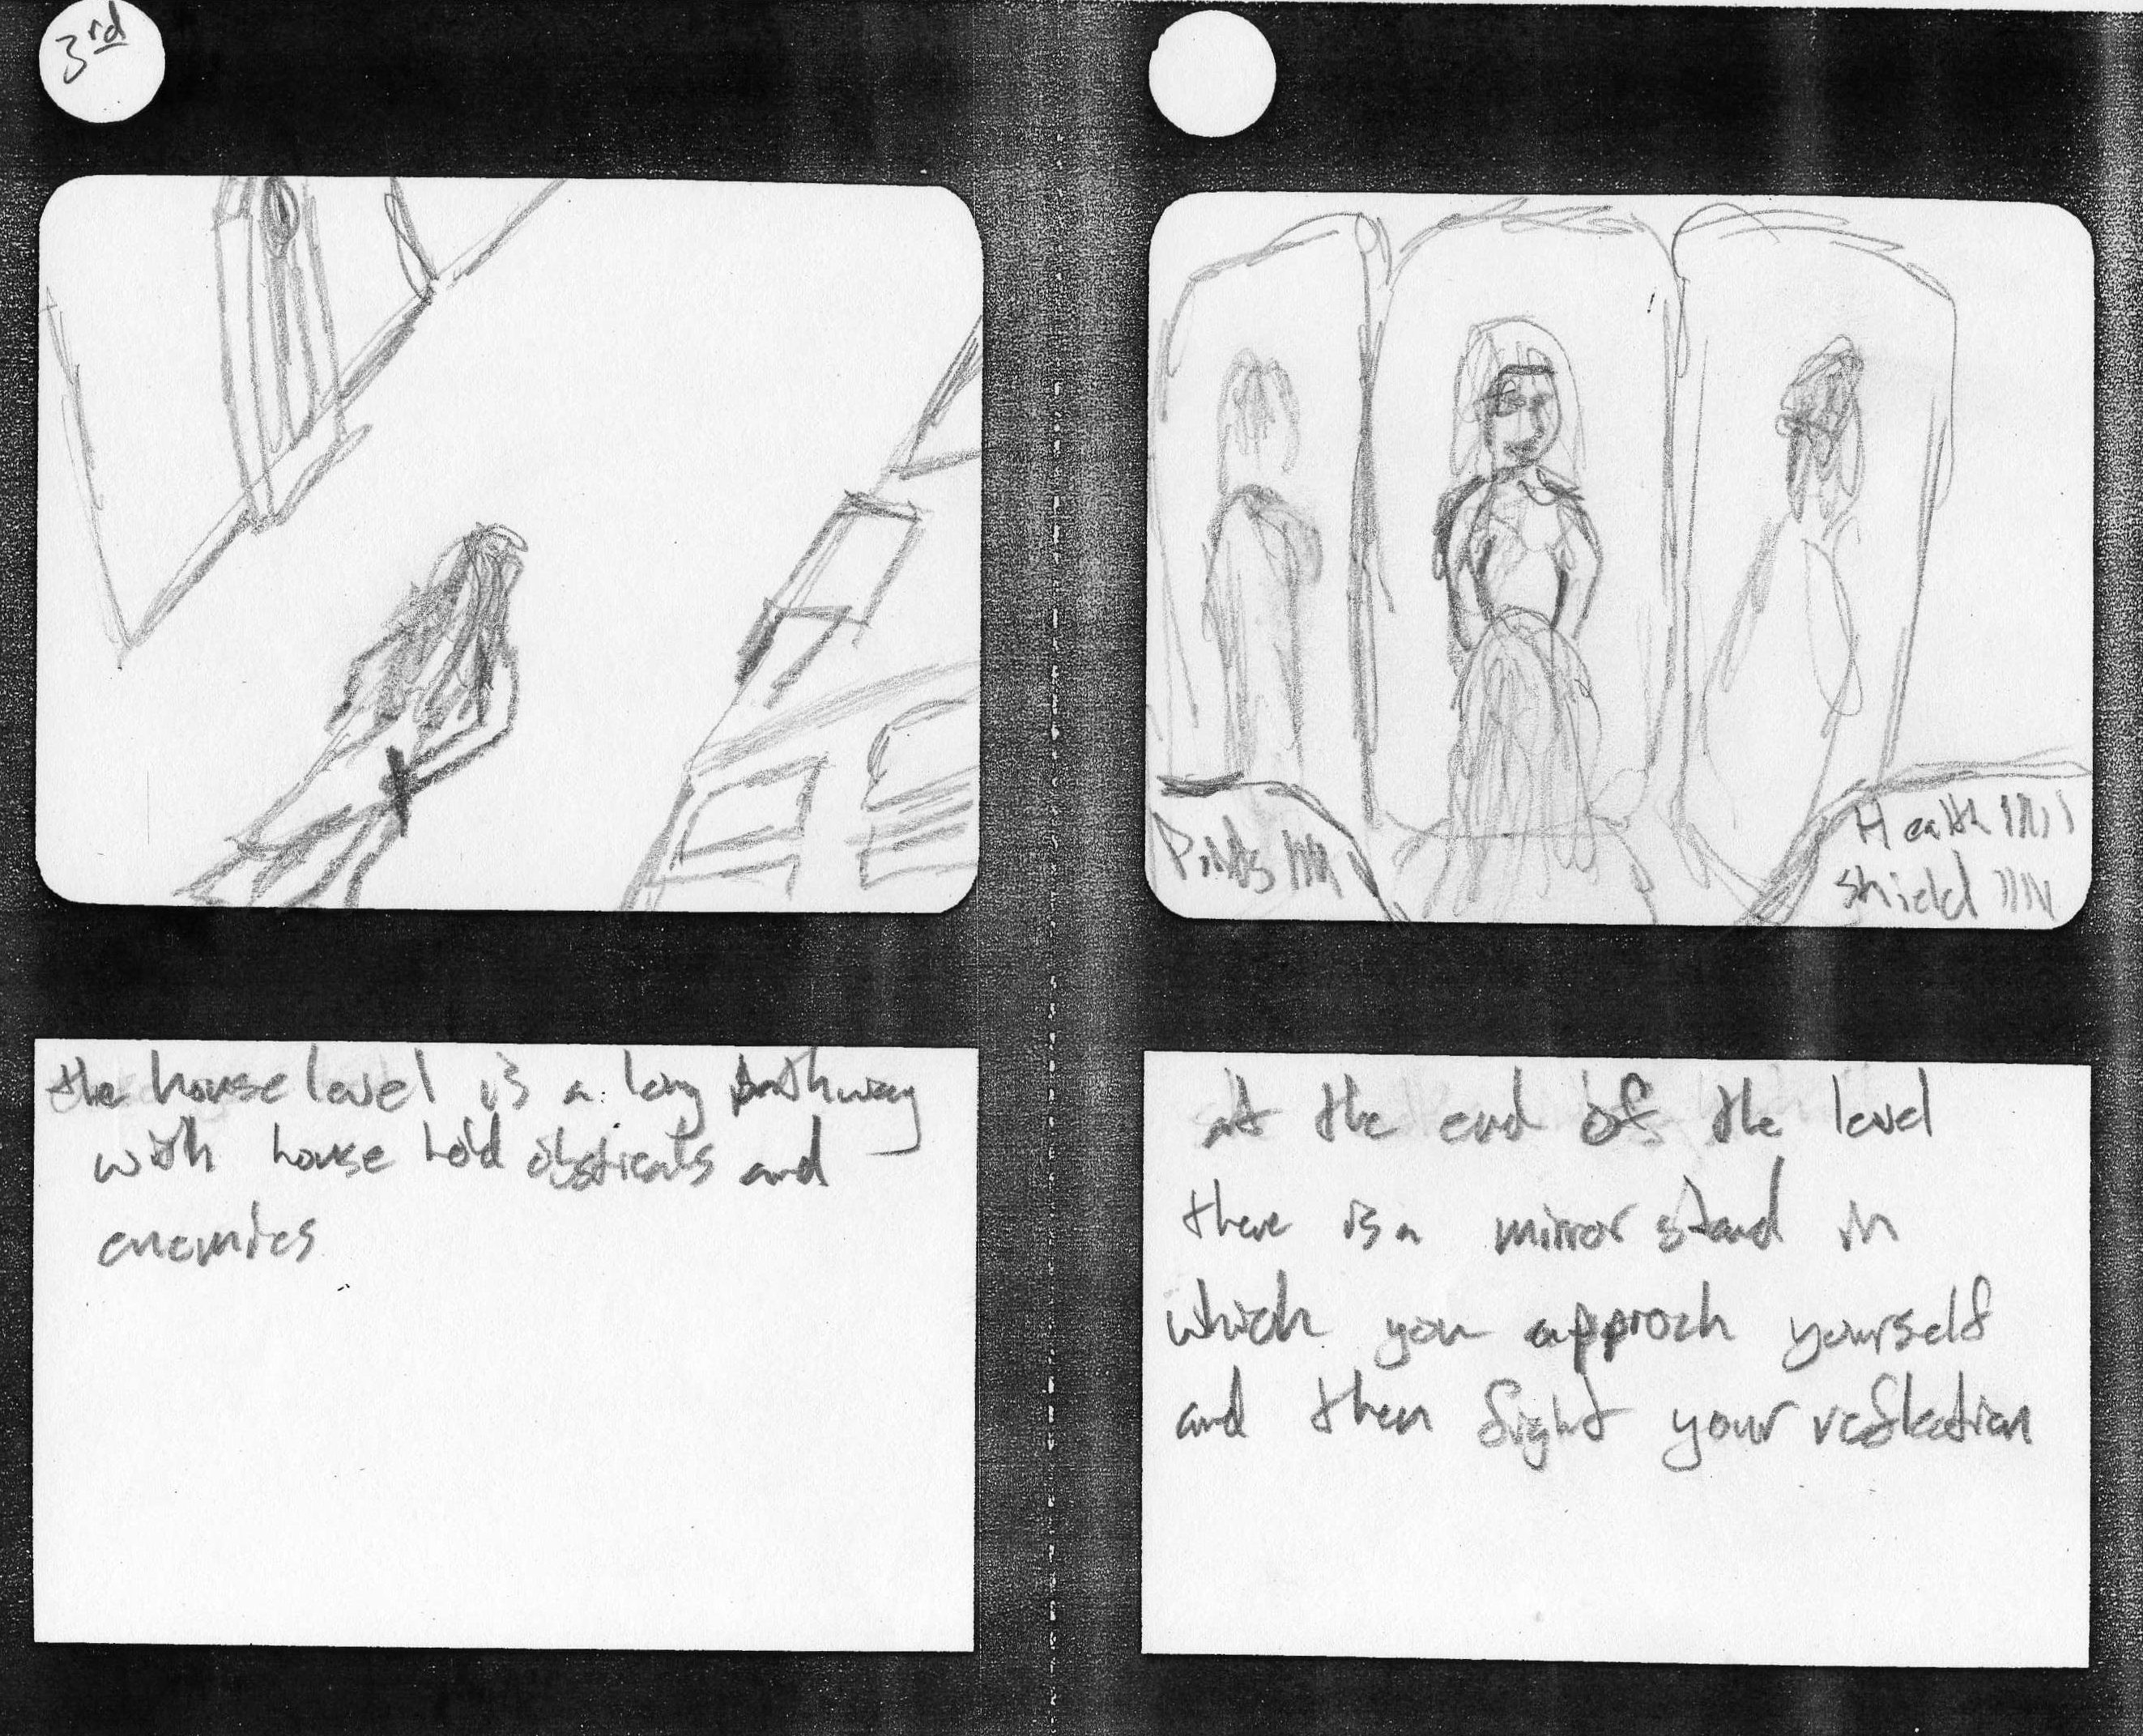 3rd
Points
Health
Shield
the house level is a long pathway
with house hold obsticals and
enemies
at the end of the level
there is a mirror stand in
which you approch yourself
and then fight your reflection